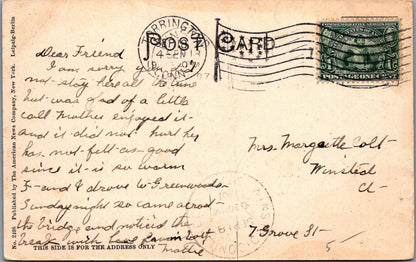 No. 3186. Published by The American News Company, New York. Leipzig-Berlin
POST CARD
TORRINGTON
CONN.
07
POSTAGE ONE
Dear Friend
I am sorry you
not stay here all the time
but was glad of a little
call Mother enjoyed it
and it did not hurt her
has not felt as good
since it is so warm
F- and I drove to Greenwoods
Sunday night so came across
the bridge and noticed the
break with
Mattie
Mrs. Margette Colt
Winsted
Ct
7 Grove St
THIS SIDE IS FOR THE ADDRESS ONLY